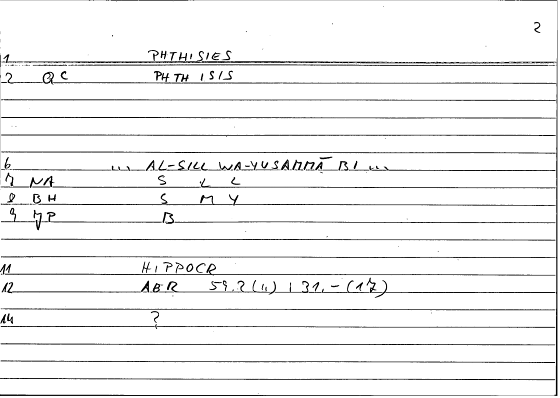 2
1 PHTHISIES
2 QC PHTHISIS
6 ... AL-SILL WA-YUSAMMĀ BI ...
7 NA S L L
8 BH S M Y
9 JP B
11 HIPPOCR
12 ABR 59.2(4) ; 31.-(17)
14 ?